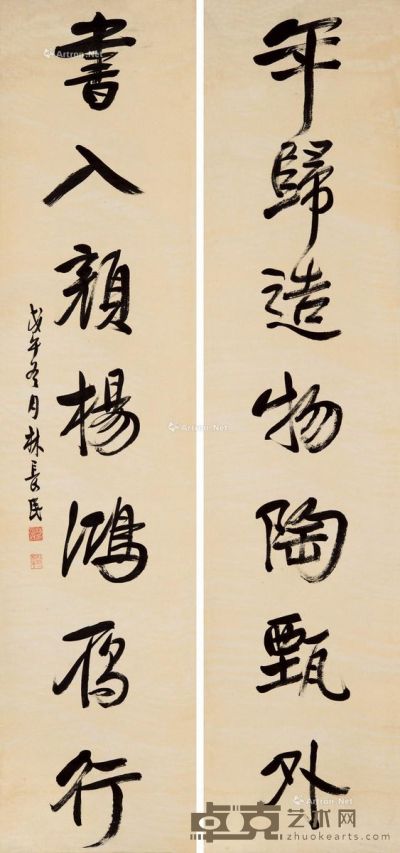 年歸造物陶甄外
書入顏楊鴻雁行
戊午冬月林長民
Artron.Net
卓克艺术网
zhuokearts.com